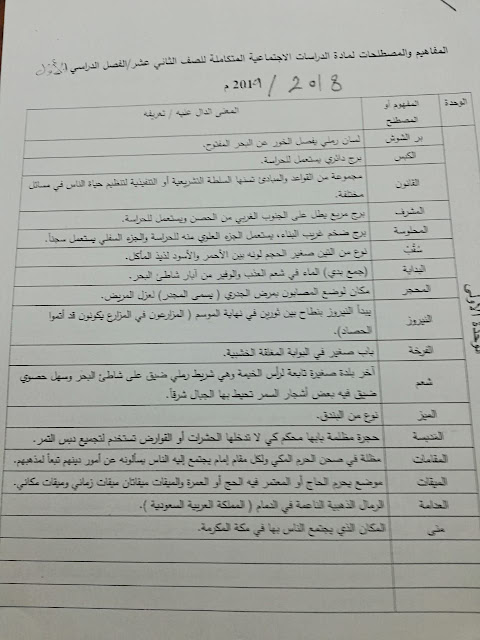 المفاهيم والمصطلحات لمادة الدراسات الاجتماعية المتكاملة للصف الثاني عشر/الفصل الدراسي الأول
2018 / 2019 م
الوحدة المفهوم أو المصطلح المعنى الدال عليه / تعريفه
الوحدة الأولى
بر الشوش لسان رملي يفصل الخور عن البحر المفتوح.
الكبس برج دائري يستعمل للحراسة.
القانون مجموعة من القواعد والمبادئ تسنها السلطة التشريعية أو التنفيذية لتنظيم حياة الناس في مسائل
مختلفة.
المشرف برج مربع يطل على الجنوب الغربي من الحصن ويستعمل للحراسة.
المحلوسة برج ضخم غريب البناء، يستعمل الجزء العلوي منه للحراسة والجزء السفلي يستعمل سجناً.
سقب نوع من التين صغير الحجم لونه بين الأحمر والأسود لذيذ المأكل.
البداية (جمع بدي) الماء في شعم العذب والوفير من آبار شاطئ البحر.
المحجر مكان لوضع المصابون بمرض الجدري ( يسمى المجدر) لعزل المريض.
النيروز يبدأ النيروز بنطاح بين ثورين في نهاية الموسم ( المزارعون في المزارع يكونون قد أتموا
الحصاد).
الفرخة باب صغير في البوابة المغلقة الخشبية.
شعم آخر بلدة صغيرة تابعة لرأس الخيمة وهي شريط رملي ضيق على شاطئ البحر وسهل حصوي
ضيق فيه بعض أشجار السمر تحيط بها الجبال شرقاً.
الميز نوع من البندق.
المدبسة حجرة مظلمة بابها محكم كي لا تدخلها الحشرات أو القوارض تستخدم لتجميع دبس التمر.
المقامات مظلة في صحن الحرم المكي ولكل مقام إمام يجتمع إليه الناس يسألونه عن أمور دينهم تبعاً لمذهبهم.
الميقات موضع يحرم الحاج أو المعتمر فيه الحج أو العمرة والميقات ميقاتان ميقات زماني وميقات مكاني.
الحدامة الرمال الذهبية الناعمة في الدمام ( المملكة العربية السعودية ).
منى المكان الذي يجتمع الناس بها في مكة المكرمة.